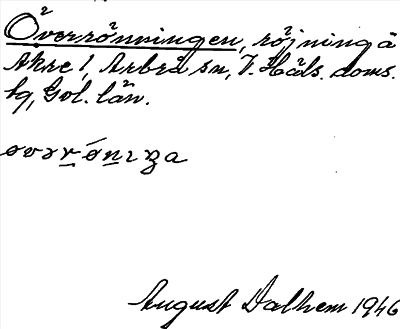 Överrönningen, röjning å
Åkre 1, Arbrå sn, V. Häls. doms.
tg, Gvl. län.
August Dalhem 1946